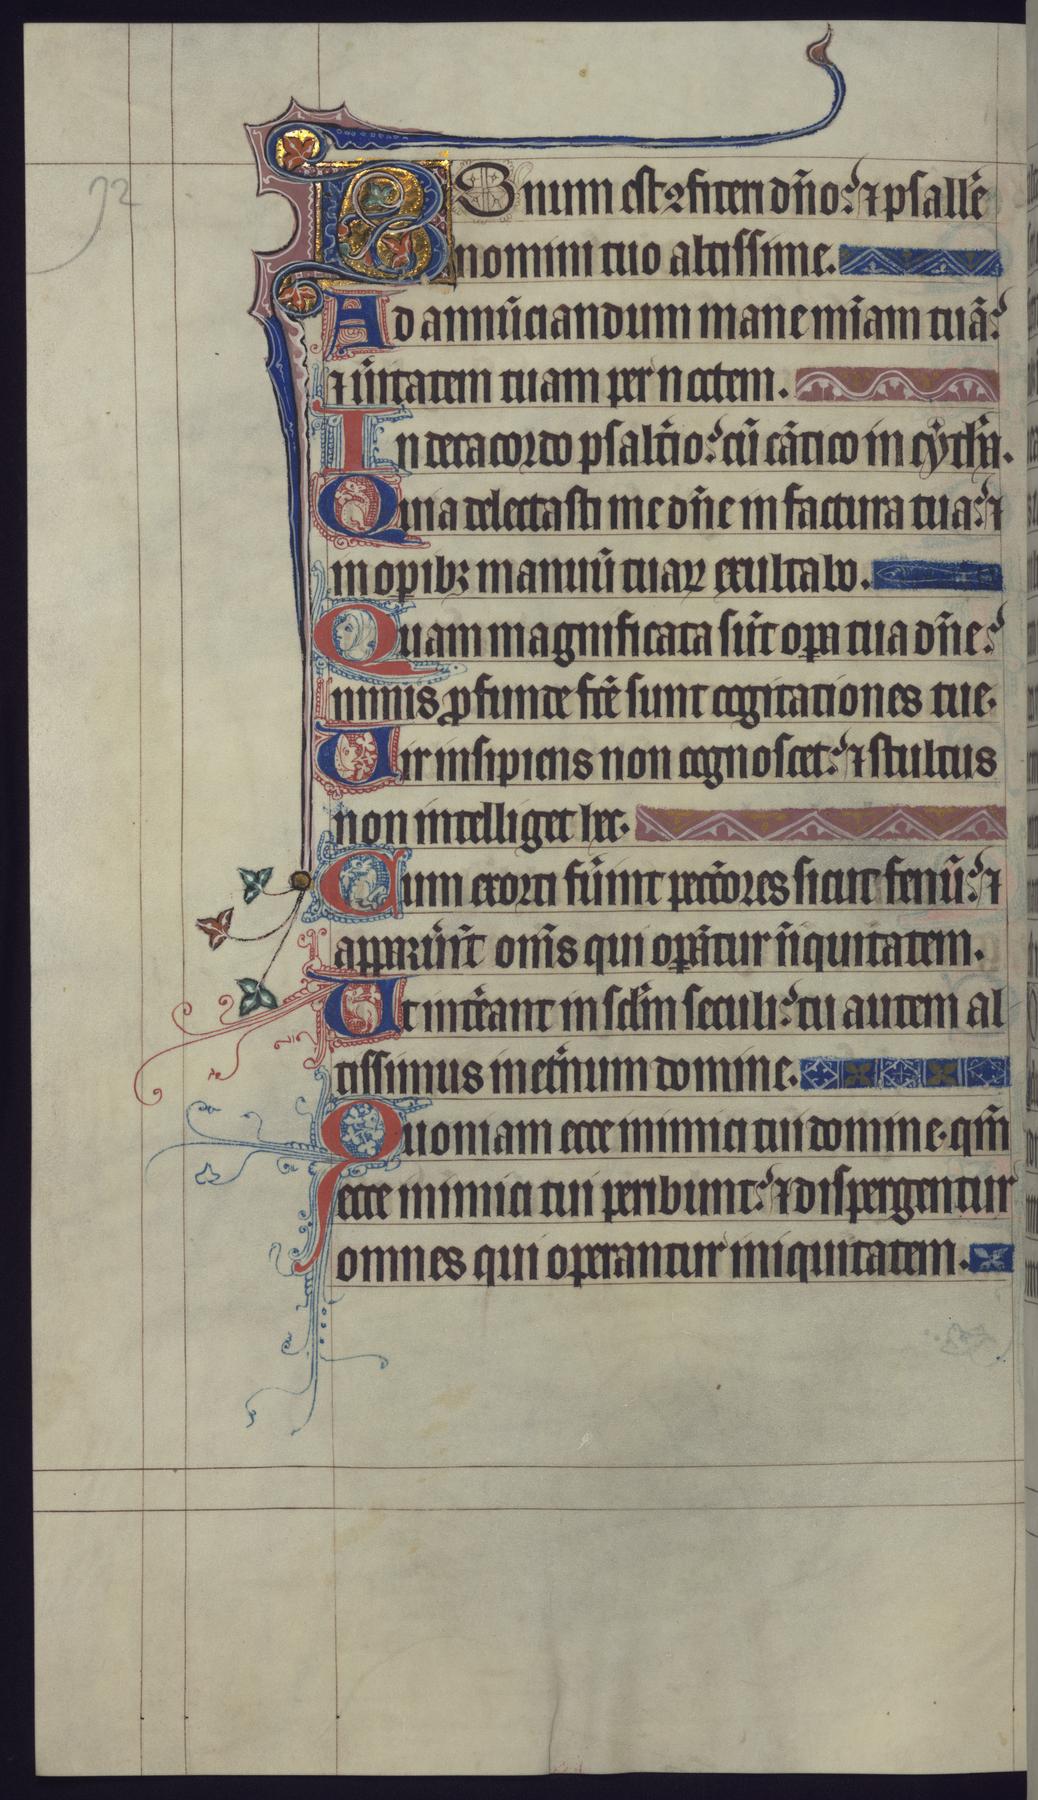 92
Bonum est ꝯfiteri dn̄o: ⁊ psallē
nomini tuo altissime.
Ad annūciandum mane mīam tuā:
⁊ ūitatem tuam per noctem.
In decacordo psaltīo: cū cātico in cythā.
Quia delectasti me dn̄e in factura tua: ⁊
in opibꝫ manuū tuaꝝ exultabo.
Quam magnificata sūt oꝑa tua dn̄e:
nimis ꝓfunde fcē sunt cogitationes tue.
Uir insipiens non cognoscet: ⁊ stultus
non intelliget hec.
Cum exorti fūint peccōres sicut fenū: ⁊
apparūnt om̄s qui oꝑātur īiquitatem.
Ut intēant in sclm̄ seculi: tu autem al
tissimus in etn̄um domine.
Quoniam ecce inimici tui domine. qm̄
ecce inimici tui peribunt: ⁊ dispergentur
omnes qui operantur iniquitatem.